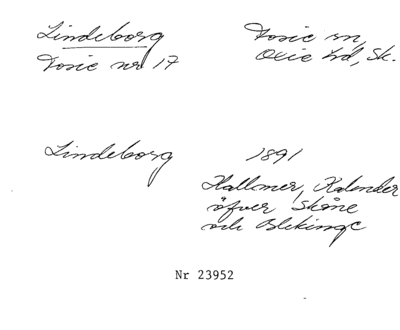 Lindeborg
Fosie nr 17
Fosie sn,
Oxie hd, Sk.
Lindeborg
1891
Hallmer, Kalender
öfver Skåne
och Blekinge
Nr 23952